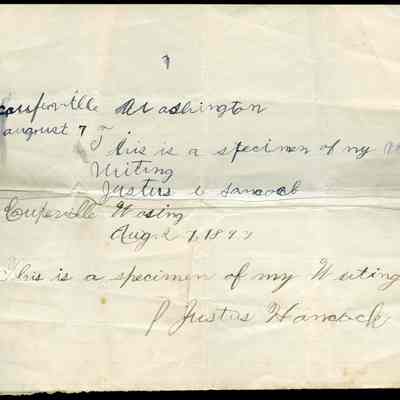 Coupeville Washington
august 7
This is a specimen of my
Writing
Justus w hancock
Coupeville Wasing
Aug. 2
This is a specimen of my Writing
Justus Hancock